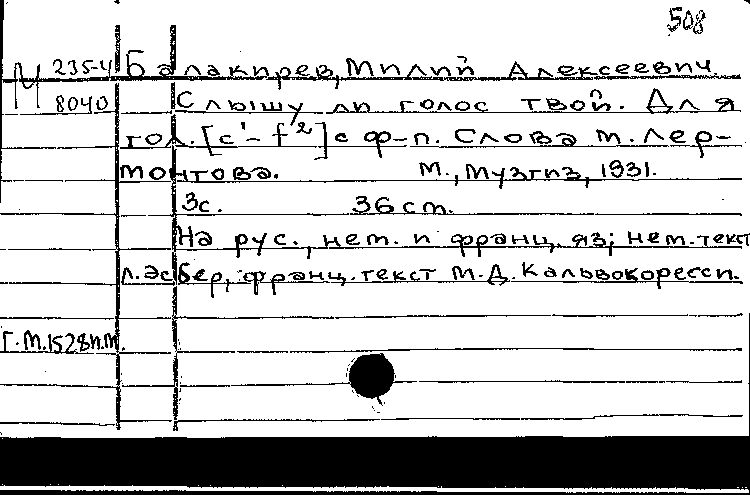 508
М 235-4 Балакирев, Милий Алексеевич
8040 Слышу ли голос твой. Для
гол. [c'– f'2] с ф-п. Слова М. Лер-
монтова. М., Музгиз, 1931.
3с. 36 cm.
На рус., нем. и франц. яз; нем. текст
Л. Эсбер, франц. текст М.Д. Кальвокоресси.
Г.М.1528п.м.